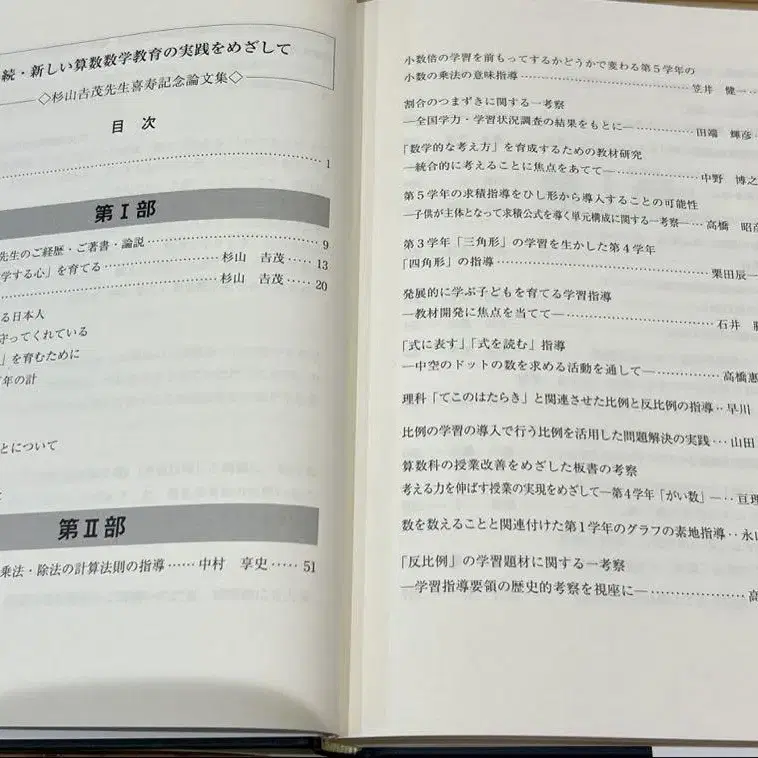 続・新しい算数数学教育の実践をめざして
◇杉山吉茂先生喜寿記念論文集◇
目 次
1
第Ⅰ部
先生のご経歴・ご著書・論説 9
学する心」を育てる 杉山 吉茂 13
杉山 吉茂 20
る日本人
守ってくれている
」を育むために
年の計
とについて
第Ⅱ部
乗法・除法の計算法則の指導 中村 享史 51
小数倍の学習を前もってするかどうかで変わる第5学年の
小数の乗法の意味指導 笠井 健一
割合のつまずきに関する一考察
―全国学力・学習状況調査の結果をもとに― 田端 輝彦
「数学的な考え方」を育成するための教材研究
―統合的に考えることに焦点をあてて― 中野 博之
第5学年の求積指導をひし形から導入することの可能性
―子供が主体となって求積公式を導く単元構成に関する一考察― 高橋 昭彦
第3学年「三角形」の学習を生かした第4学年
「四角形」の指導 栗田辰一
発展的に学ぶ子どもを育てる学習指導
―教材開発に焦点を当てて― 石井
「式に表す」「式を読む」指導
―中空のドットの数を求める活動を通して― 高橋恵
理科「てこのはたらき」と関連させた比例と反比例の指導 早川
比例の学習の導入で行う比例を活用した問題解決の実践 山田
算数科の授業改善をめざした板書の考察
考える力を伸ばす授業の実現をめざして―第4学年「がい数」― 亘理
数を数えることと関連付けた第1学年のグラフの素地指導 永山
「反比例」の学習題材に関する一考察
―学習指導要領の歴史的考察を視座に― 高